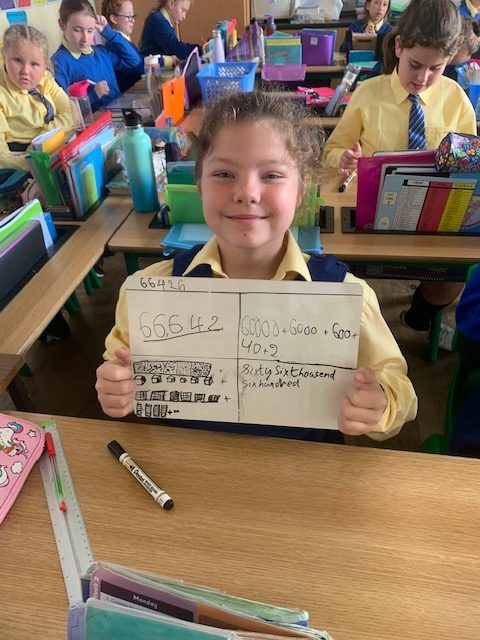 66426
66,642
60000+6000+600+
40+2
Sixty Six thousend
Six hundred
Monday